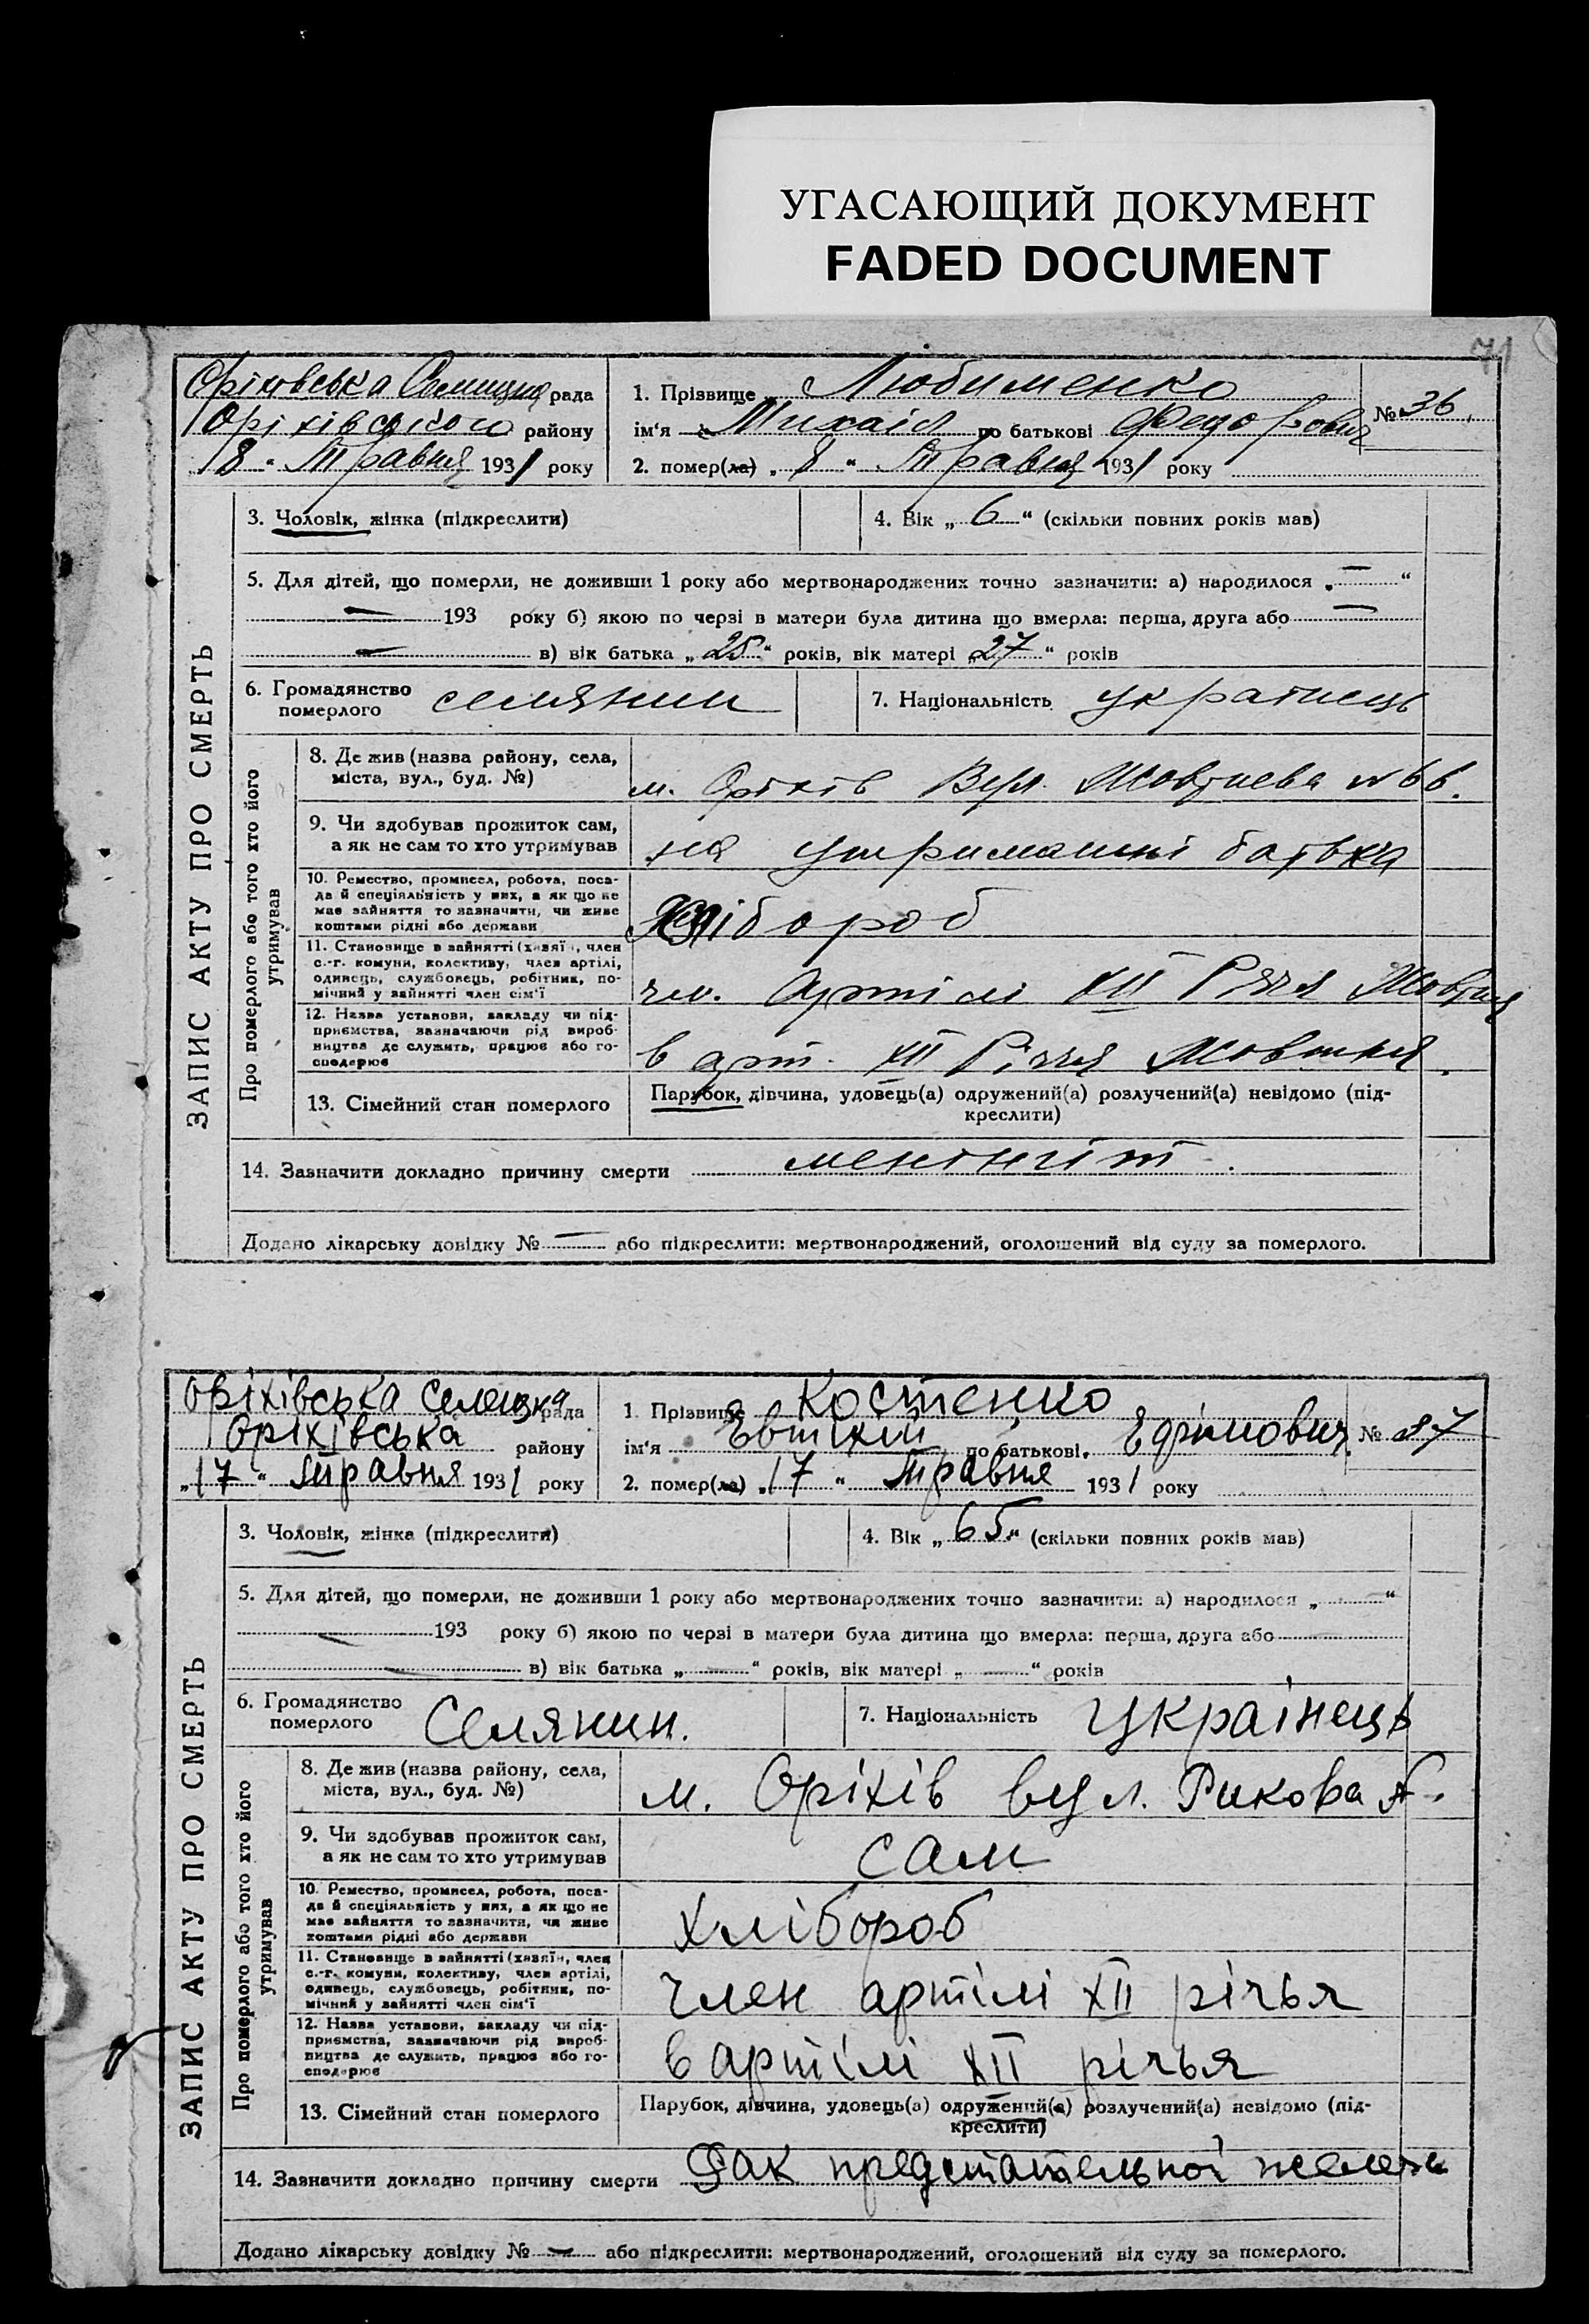 УГАСАЮЩИЙ ДОКУМЕНТ
FADED DOCUMENT
71
ЗАПИС АКТУ ПРО СМЕРТЬ
Оріхівська Селищна рада
Оріхівського району
„18“ Травня 1931 року
1. Прізвище Любименко
№ 36
ім‘я Михаіл по батькові Федорович
2. помер(ла) „8“ Травня 1931 року
3. Чоловік, жінка (підкреслити)
4. Вік „6“ (скільки повних років мав)
5. Для дітей, що померли, не доживши 1 року або мертвонароджених точно зазначити: а) народилося „—“
— 193 року б) якою по черзі в матери була дитина що вмерла: перша, друга або —
— в) вік батька „25“ років, вік матері „27“ років
6. Громадянство померлого селянин
7. Національність украінець
Про померлого або того хто його утримував
8. Де жив (назва району, села, міста, вул., буд. №)
м. Оріхів Вул. Жовтнева № 66.
9. Чи здобував прожиток сам, а як не сам то хто утримував
на утриманні батька
10. Ремество, промисел, робота, посада й спеціяльність у них, а як що не має зайняття то зазначити, чи живе коштами рідні або держави
Хлібороб
11. Становище в зайнятті (хазяїн, член с.-г. комуни, колективу, член артілі, одинець, службовець, робітник, помічний у зайнятті член сім‘ї
чл. Артілі XII Річчя Жовтня
12. Назва установи, закладу чи підприємства, зазначаючи рід виробництва де служить, працює або господарює
в арт. XII Річчя Жовтня.
13. Сімейний стан померлого
Парубок, дівчина, удовець(а) одружений(а) розлучений(а) невідомо (підкреслити)
14. Зазначити докладно причину смерти менінгіт.
Додано лікарську довідку № — або підкреслити: мертвонароджений, оголошений від суду за померлого.
ЗАПИС АКТУ ПРО СМЕРТЬ
Оріхівська Селещна рада
Оріхівська району
„17“ Травня 1931 року
1. Прізвище Костенко
ім‘я Евтихій по батькові Ефімович № 37
2. помер(ла) „17“ Травня 1931 року
3. Чоловік, жінка (підкреслити)
4. Вік „65“ (скільки повних років мав)
5. Для дітей, що померли, не доживши 1 року або мертвонароджених точно зазначити: а) народилося „ “
— 193 року б) якою по черзі в матери була дитина що вмерла: перша, друга або
— в) вік батька „—“ років, вік матері „—“ років
6. Громадянство померлого Селянин.
7. Національність Украінець
Про померлого або того хто його утримував
8. Де жив (назва району, села, міста, вул., буд. №)
м. Оріхів вул. Рикова
9. Чи здобував прожиток сам, а як не сам то хто утримував
сам
10. Ремество, промисел, робота, посада й спеціяльність у них, а як що не має зайняття то зазначити, чи живе коштами рідні або держави
Хлібороб
11. Становище в зайнятті (хазяїн, член с.-г. комуни, колективу, член артілі, одинець, службовець, робітник, помічний у зайнятті член сім‘ї
член артілі XII річья
12. Назва установи, закладу чи підприємства, зазначаючи рід виробництва де служить, працює або господарює
в артілі XII річья
13. Сімейний стан померлого
Парубок, дівчина, удовець(а) одружений(а) розлучений(а) невідомо (підкреслити)
14. Зазначити докладно причину смерти Рак предстательної железы
Додано лікарську довідку № — або підкреслити: мертвонароджений, оголошений від суду за померлого.